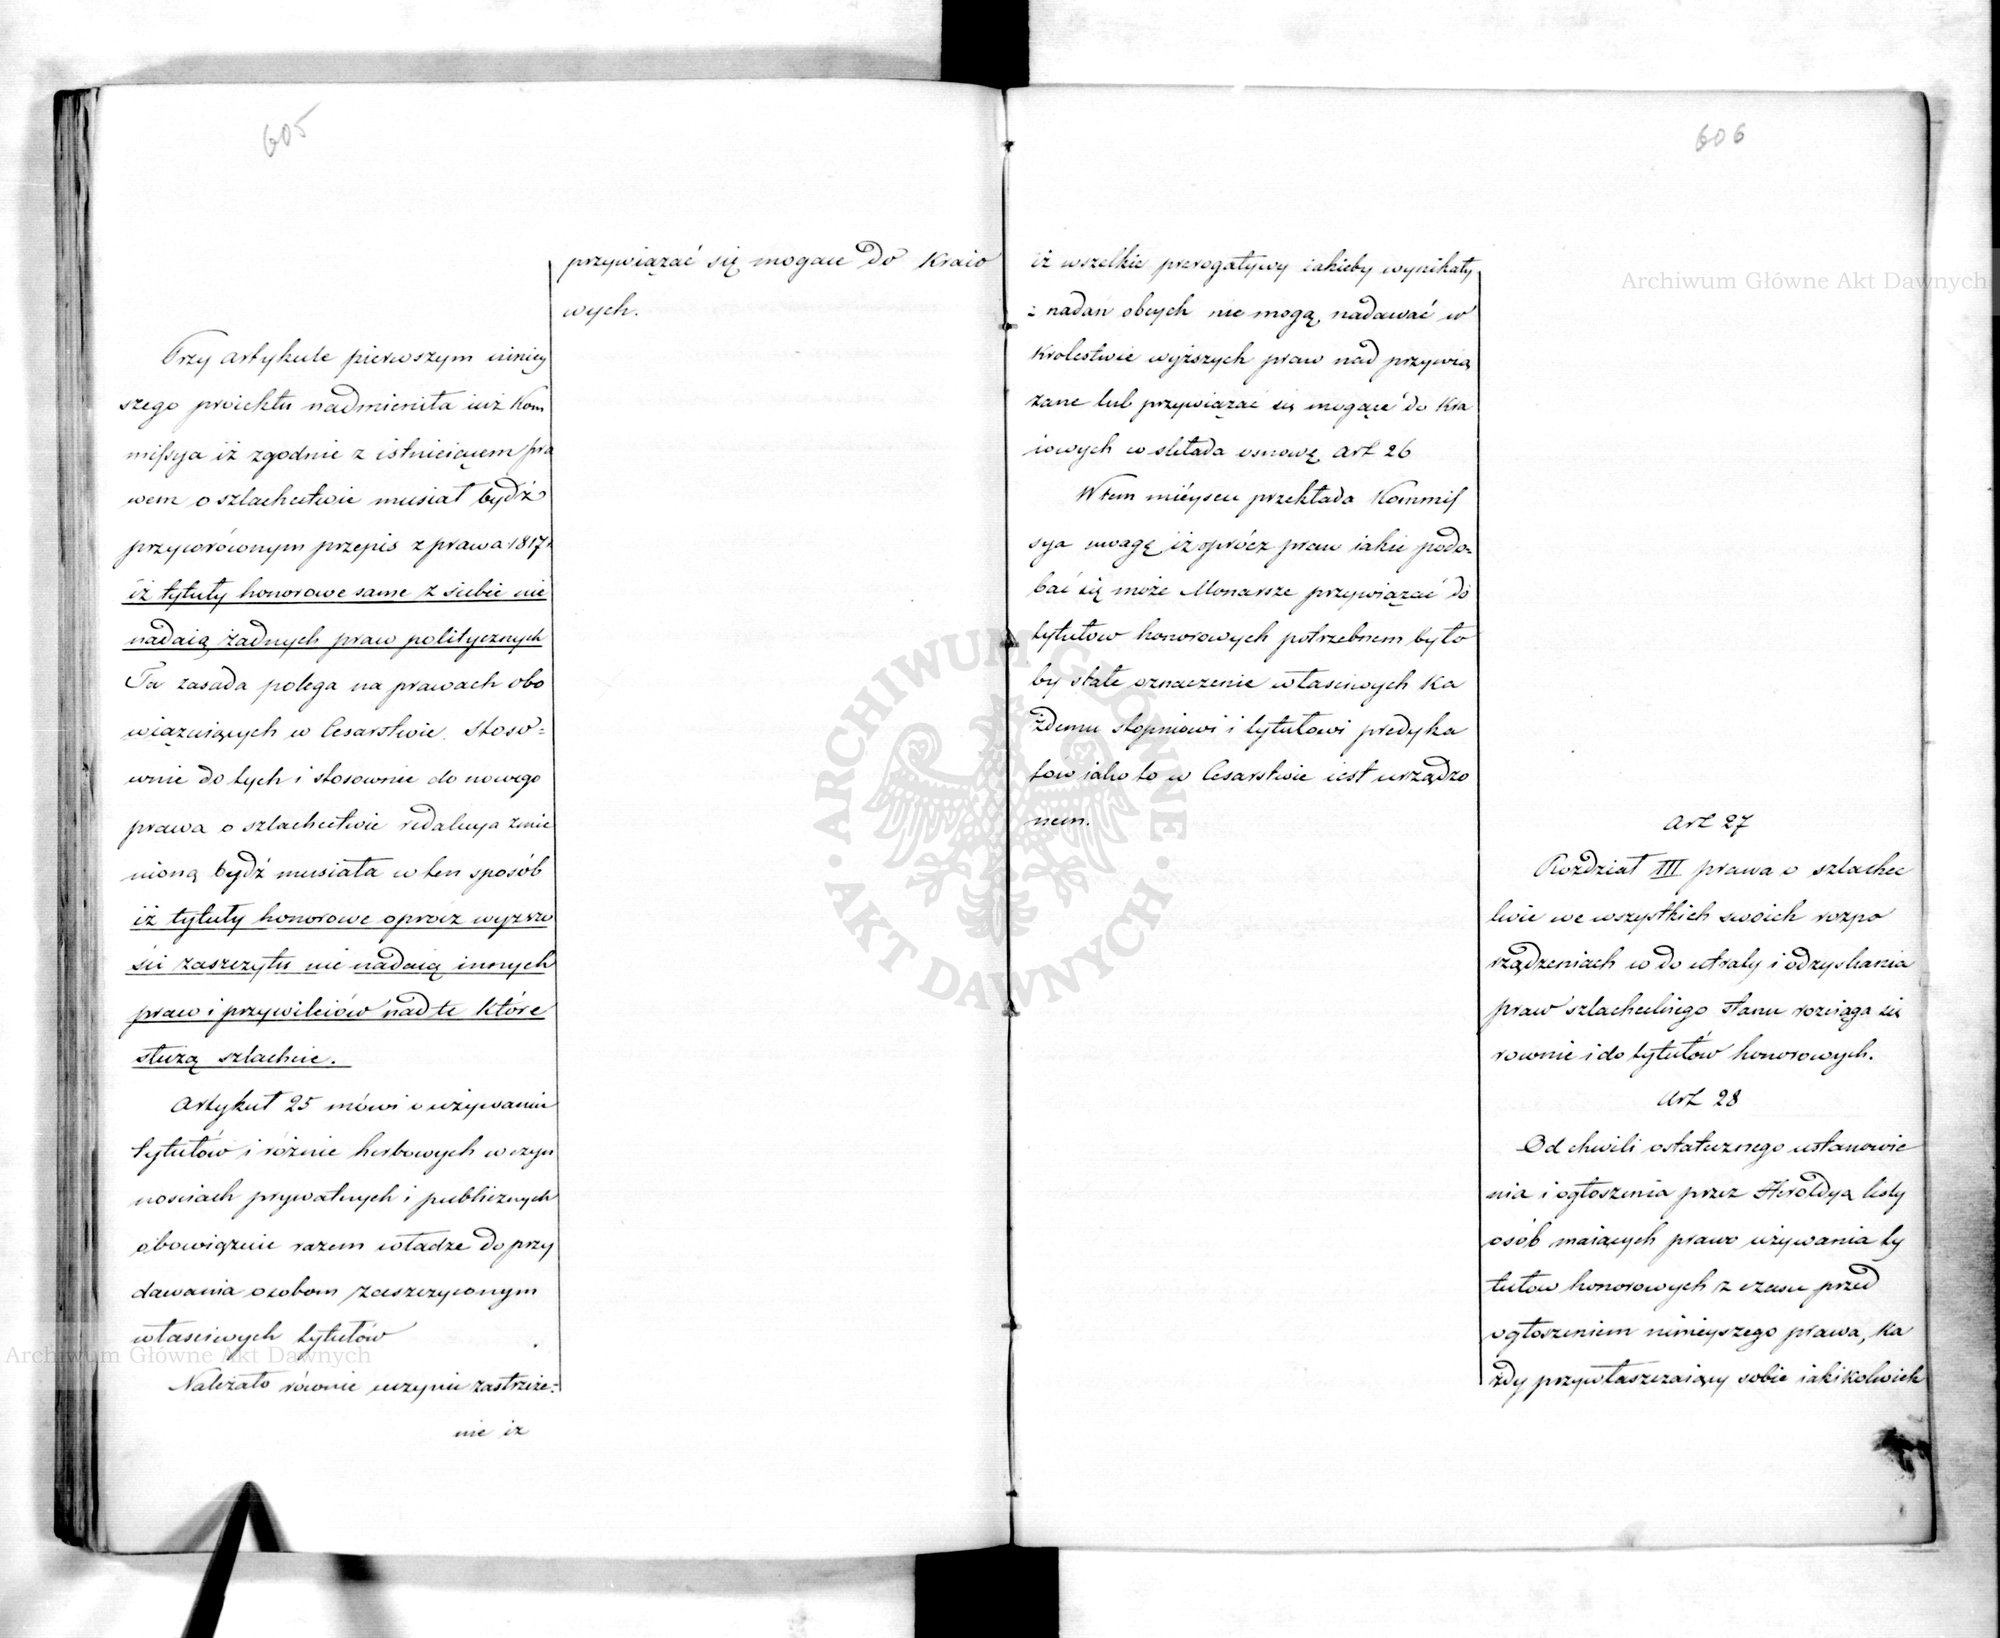 605
przywiązać się mogące do Kraio
wych.
Przy artykule pierwszym niniey
szego proiektu nadmieniła iuż Kom
missya iż zgodnie z istnieiącem pra
wem o szlachectwie musiał bydź
przywrócnym przepis z prawa 1817 r
iż tytuły honorowe same z siebie nie
nadaią żadnych praw politycznych
Ta zasada polega na prawach obo
wiązuiących w Cesarstwie. Stosow=
wnie do tych i stosownie do nowego
prawa o szlachectwie redakcya zmie
nioną bydź musiała w ten sposób
iż tytuły honorowe oprócz wyższo
ści zaszczytu nie nadaią innych
praw i przywileiów nad te które
służą szlachcie.
Artykuł 25 mówi o używaniu
tytułów i różnic herbowych w czyn
nościach prywatnych i publicznych
obowiązuie razem władze do przy
dawania osobom zaszczyconym
właściwych tytułów
Należało równie uczynić zastrzeże=
nie iż
606
iż wszelkie prerogatywy iakieby wynikały
z nadań obcych nie mogą nadawać w
Królestwie wyższych praw nad przywią
zane lub przywiązać się mogące do Kra
iowych w składa osnowę Art 26
W tem mieyscu przekłada Kommis
sya uwagę iż oprócz praw iakie podo=
bać się może Monarsze przywiązać do
tytułów honorowych potrzebnem było
by stałe oznaczenie właściwych Ka
żdemu stopniowi i tytułowi predyka
tów iako to w Cesarstwie iest urządzo
nem.
Art 27
Rozdział III prawa o szlachec
twie we wszystkich swoich rozpo
rządzeniach w do utraty i odzyskania
praw szlacheckiego stanu rozciąga się
rownie i do tytułów honorowych.
Art 28
Od chwili ostatecznego ustanowie
nia i ogłoszenia przez Heroldyą listy
osób maiących prawo używania ty
tułów honorowych z czasu przed
ogłoszeniem ninieyszego prawa, Ka
żdy przywłaszczaiący sobie iakikolwiek
Archiwum Główne Akt Dawnych
Archiwum Główne Akt Dawnych
ARCHIWUM GŁÓWNE · AKT DAWNYCH ·